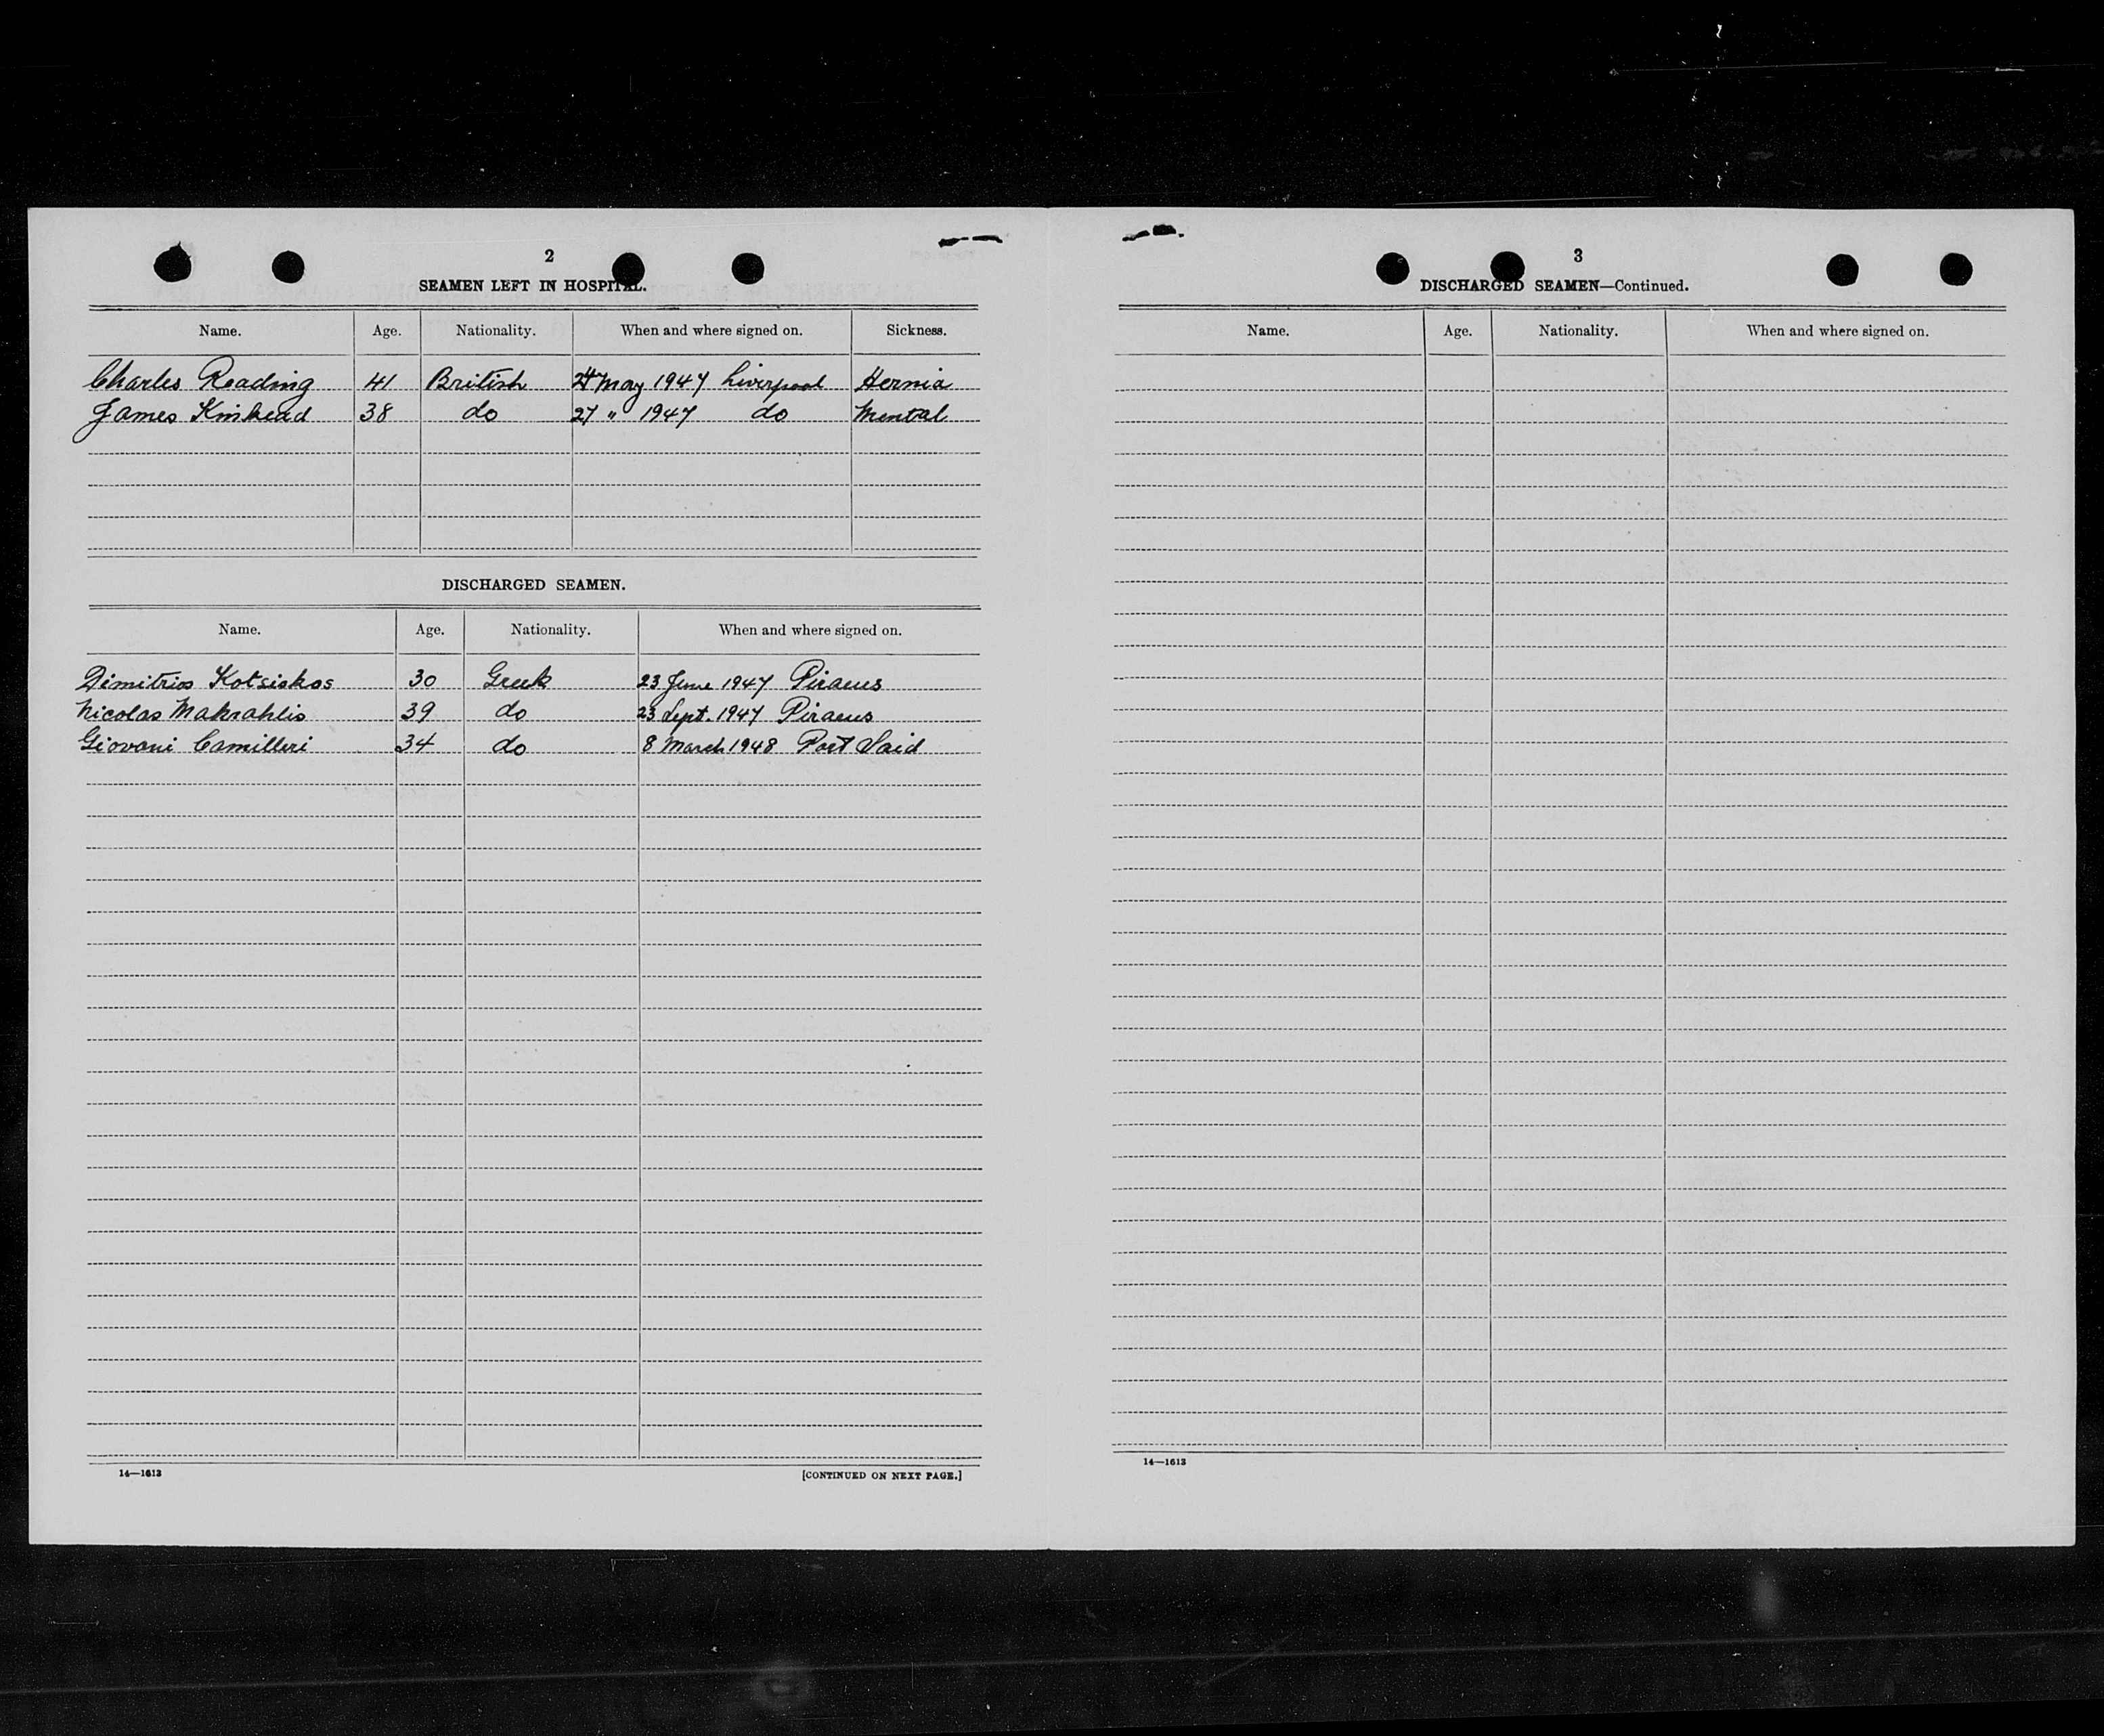 2
SEAMEN LEFT IN HOSPITAL.
Name. Age. Nationality. When and where signed on. Sickness.
Charles Reading 41 British May 1947 Liverpool Hernia
James Kinkead 38 do 27 " 1947 do Mental
DISCHARGED SEAMEN.
Name. Age. Nationality. When and where signed on.
Dimitrios Kotsiokos 30 Greek 23 June 1947 Piraeus
Nicolas Makrahlis 39 do 23 Sept. 1947 Piraeus
Giovani Camilleri 34 do 8 March 1948 Port Said
14—1613
[CONTINUED ON NEXT PAGE.]
3
DISCHARGED SEAMEN—Continued.
Name. Age. Nationality. When and where signed on.
14—1613